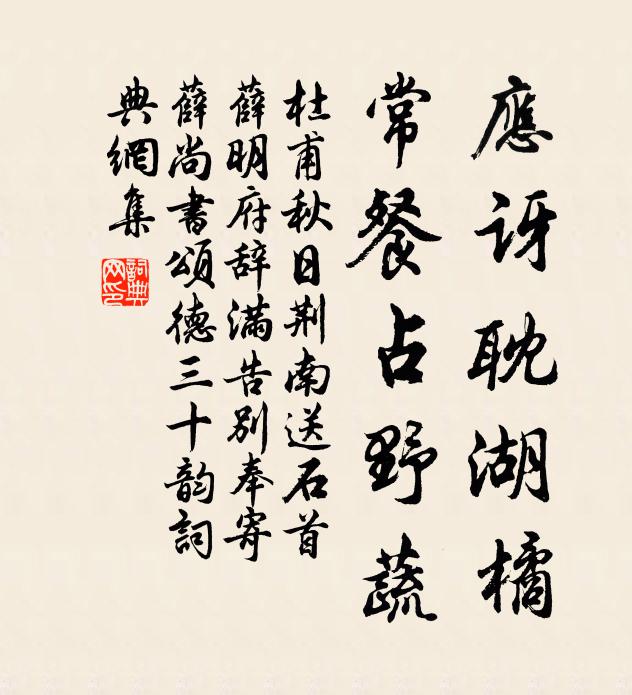 應訝耽湖橘
常餐占野蔬
杜甫秋日荆南送石首
薛明府辞滿告别奉寄
薛尚書頌德三十韵詞
典網集
詞典
网印